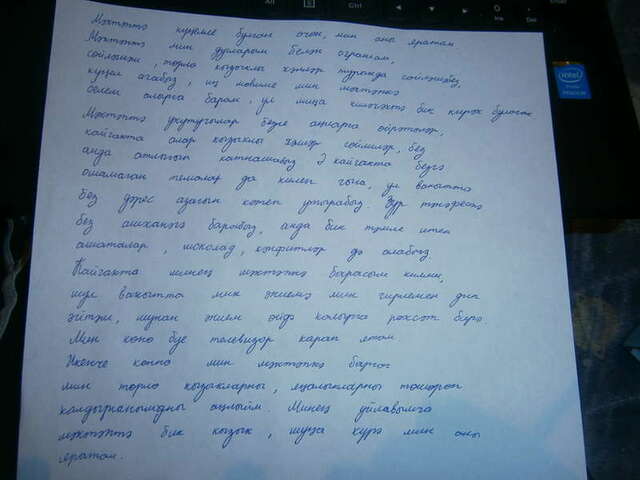 Мәктәптә күңелле булган өчен, мин аны яратам
Мәктәптә мин дусларым белән аралашам,
сөйләшәм, төрле кызыклы хәлләр турында сөйләшәбез,
күңел ачабыз, иң мөһиме мин мәктәпкә
белем алырга барам. Ул миңа киләчәктә бик кирәк булачак
Мәктәптә укытучылар безне аңларга өйрәтәләр,
кайчакта алар кызыклы хәлләр сөйлиләр, без
анда катнашабыз Ә кайчакта безгә
ошамаган темалар да килеп чыга, ул вакытта
без дәрес азагын көтеп утырабыз. Зур тәнәфестә
без ашханәгә барабыз, анда бик тәмле итеп
ашаталар, шоколад, кәнфитләр дә алабыз.
Кайчакта минең мәктәпкә барасым килми,
шул вакытта мин әнигә мин чирлим дип
әйтәм, шуннан әнием өйдә калырга рөхсәт бирә
Мин көне буе телевизор карап ятам
Икенче көнне мин мәктәпкә баргач
мин төрле кызыкларны, яңалыкларны төшереп
калдырганымны аңлыйм. Минем уйлавымча
мәктәптә бик кызык, шуңа күрә мин аны
яратам.
intel
PENTIUM
Alt
Ins
Del